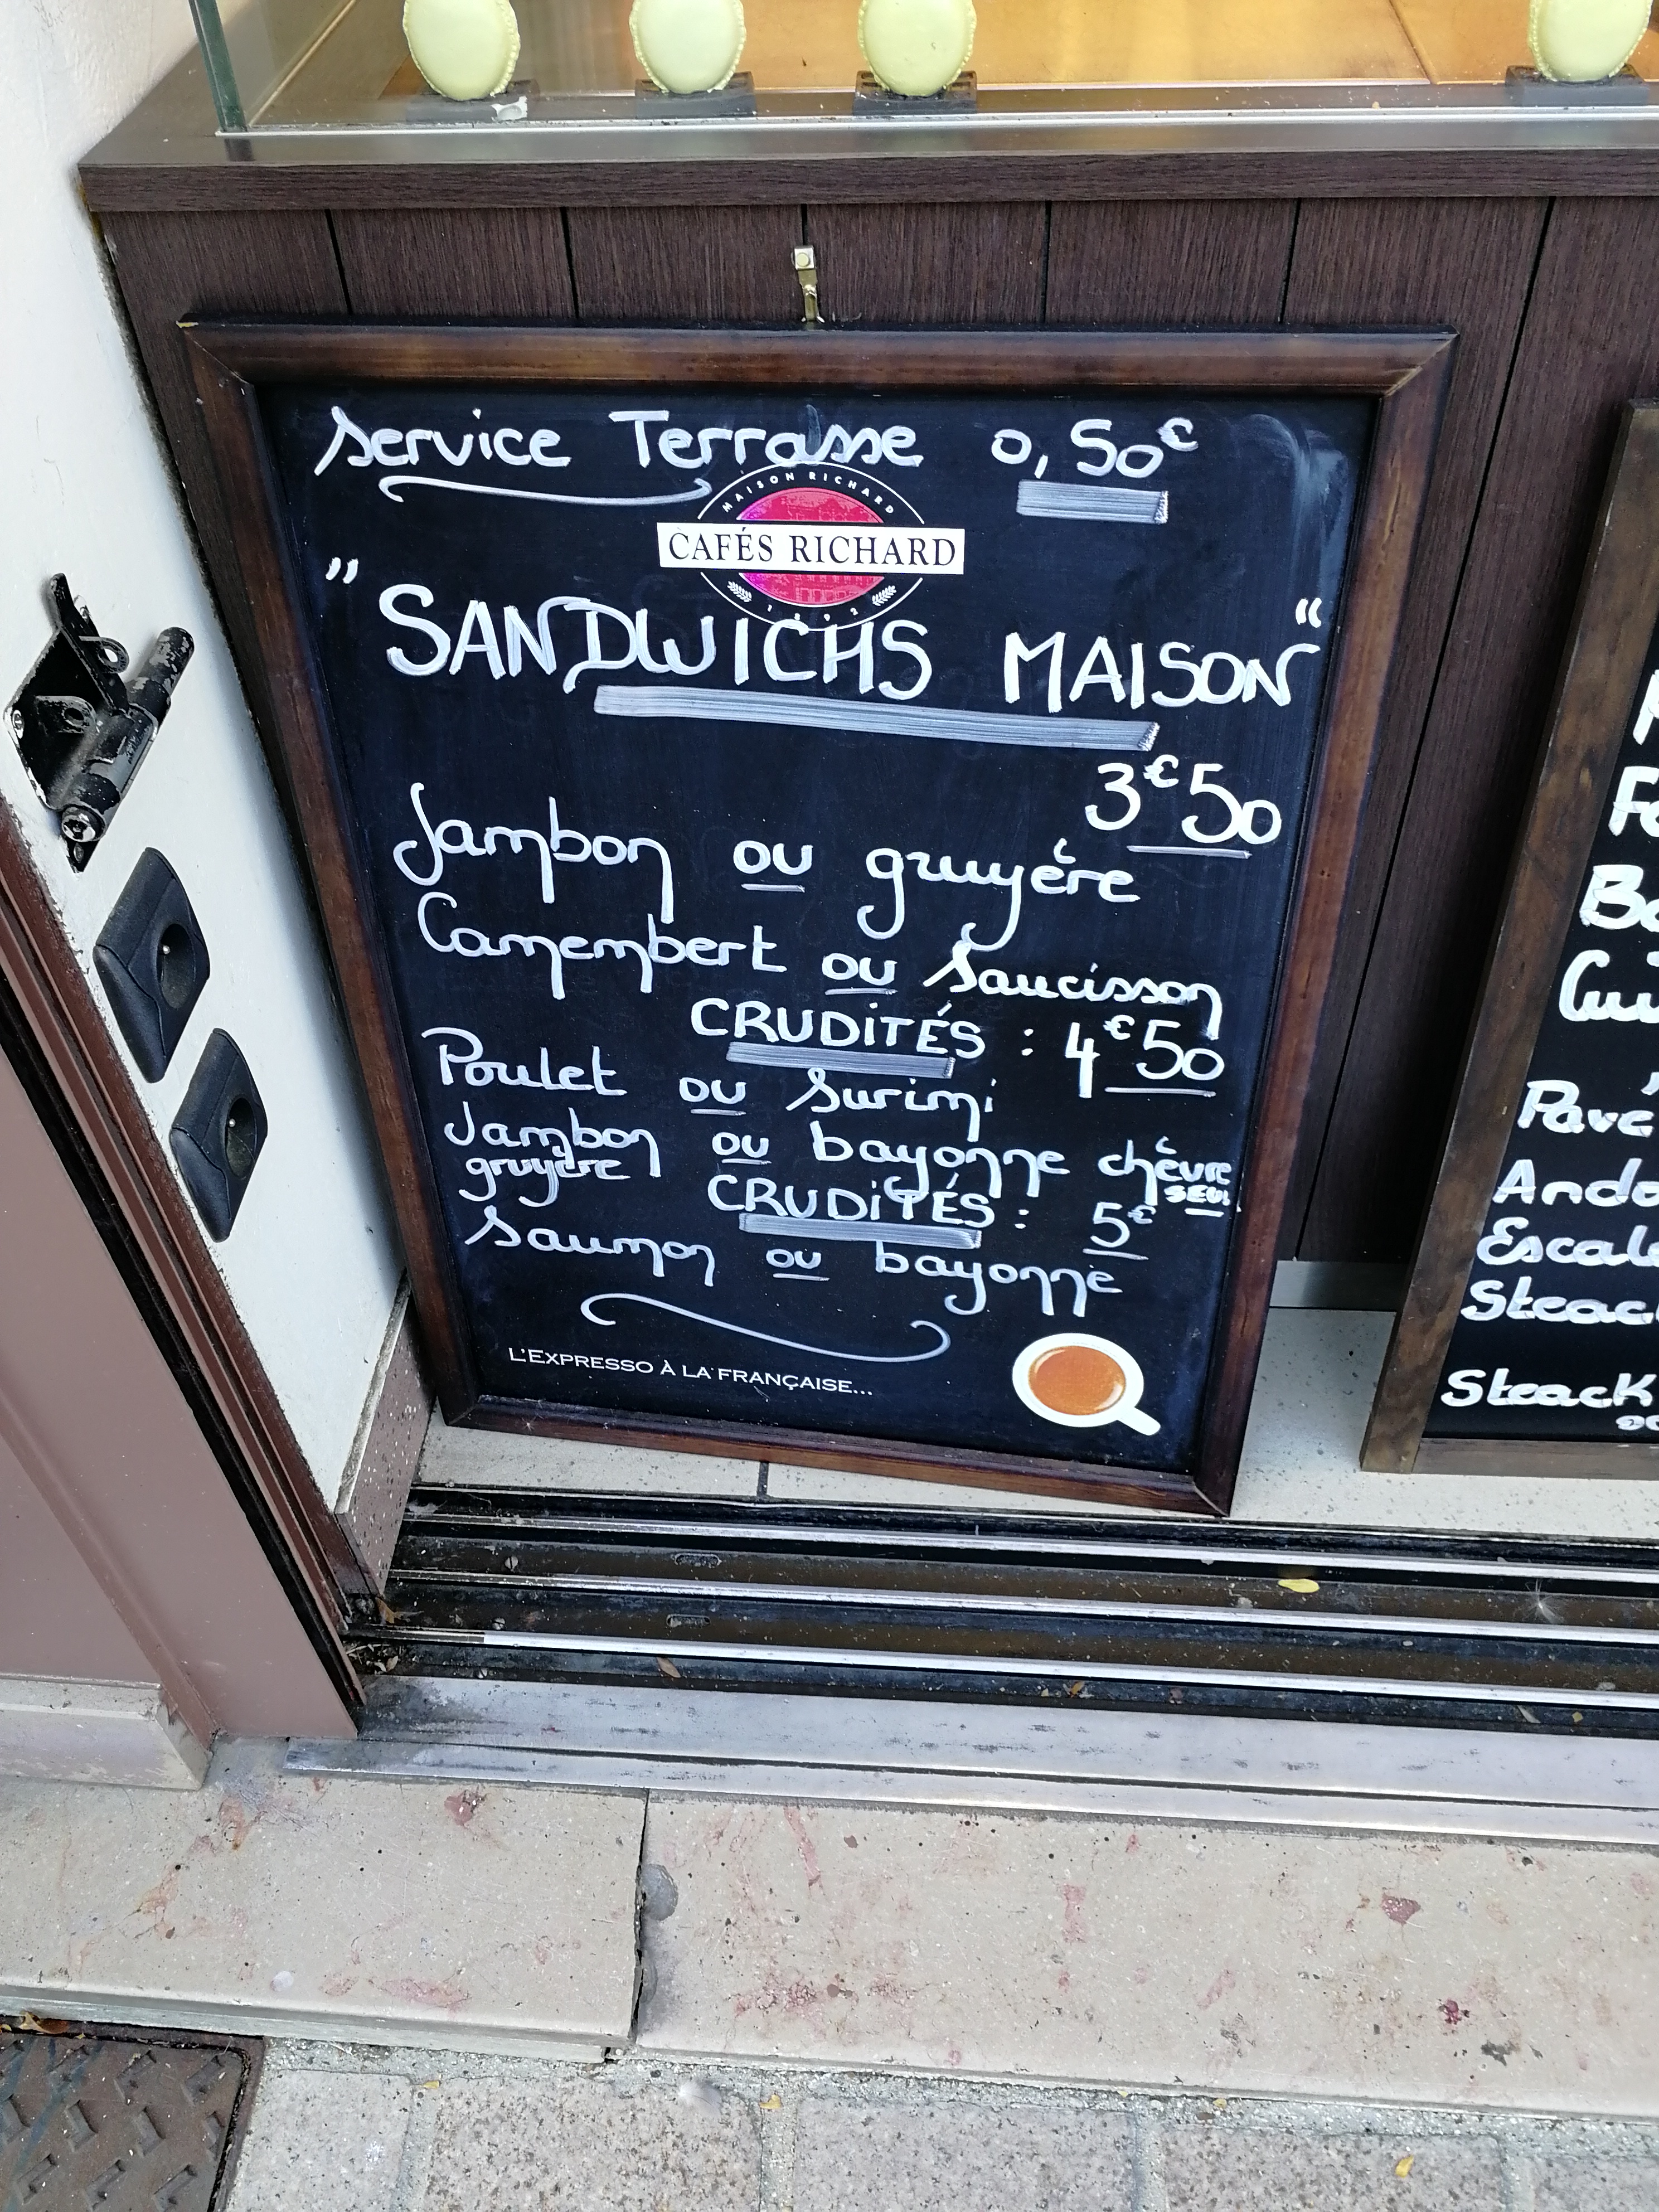 Service Terrasse 0,50€
MAISON RICHARD
CAFÉS RICHARD
1892
" SANDWICHS MAISON "
3€50
Jambon ou gruyére
Camembert ou Saucisson
CRUDITÉS : 4€50
Poulet ou Surimi
Jambon ou bayonne chèvre
gruyère SEUL
CRUDITÉS : 5€
Saumon ou bayonne
L'EXPRESSO À LA FRANÇAISE...
Steack